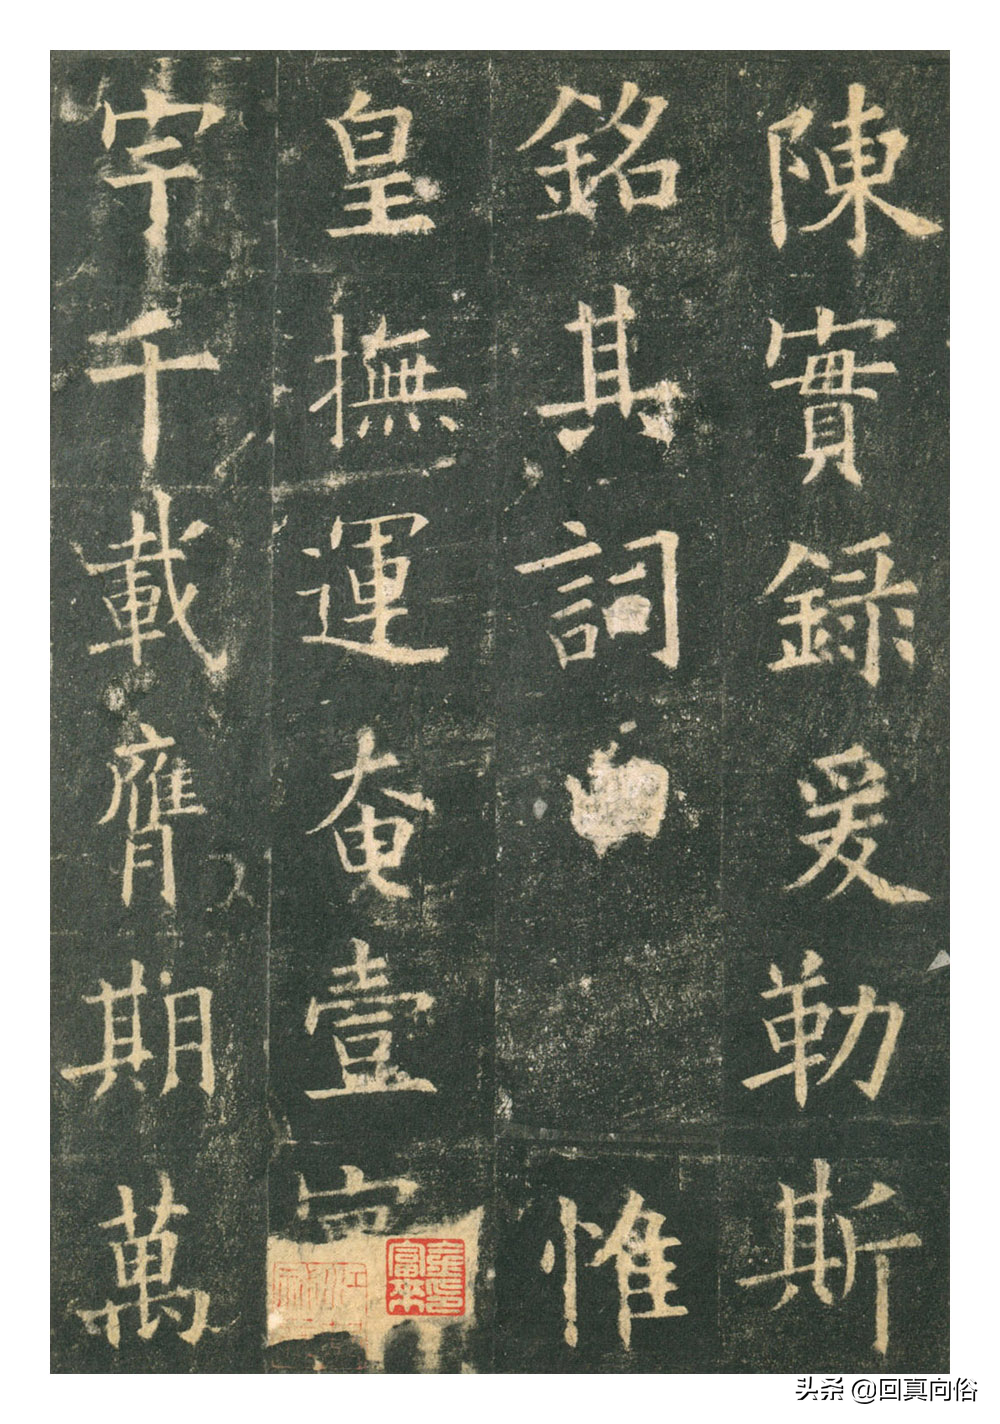 陳實録爰勒斯
銘其詞
惟
皇撫運奄壹寰
宇千載膺期萬
头条 @回真向俗